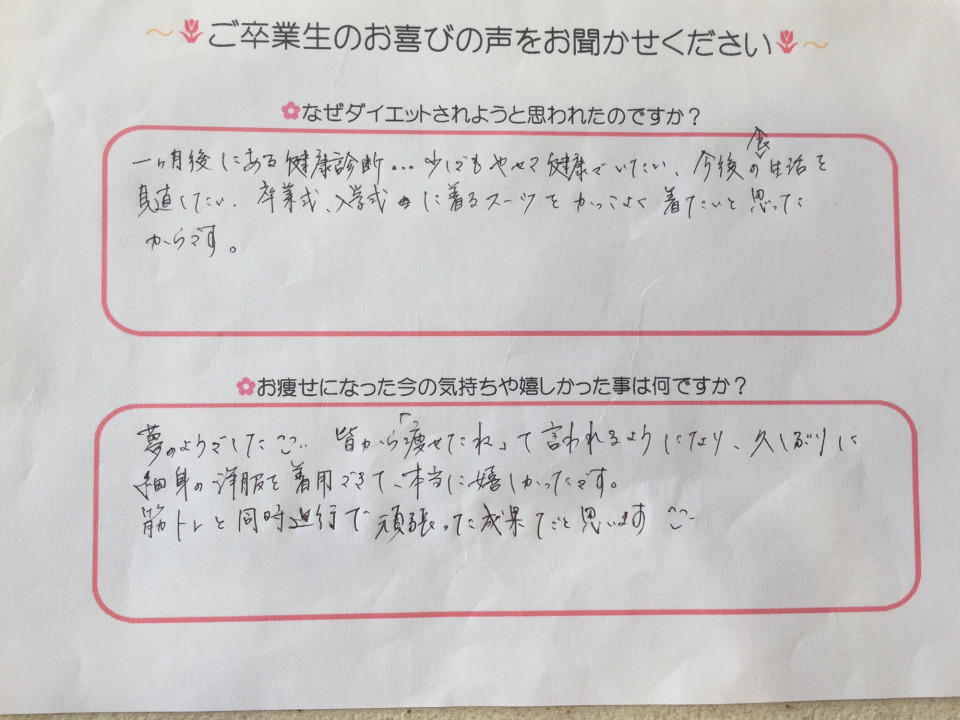 ～ご卒業生のお喜びの声をお聞かせください～
なぜダイエットされようと思われたのですか？
一ヶ月後にある健康診断…少しでもやせて健康でいたい、今後の食生活を
見直したい、卒業式、入学式に着るスーツをかっこよく着たいと思った
からです。
お痩せになった今の気持ちや嬉しかった事は何ですか？
夢のようでした^^ 皆から「痩せたね」って言われるようになり、久しぶりに
細身の洋服を着用できて、本当に嬉しかったです。
筋トレと同時進行で頑張った成果だと思います^^